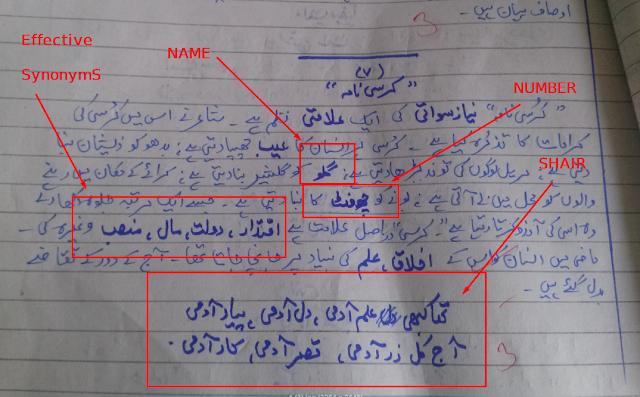 اوصاف بیان ہیں۔
3
Effective
SynonymS
NAME
NUMBER
SHAIR
(۷)
"کرسی نامہ"
"کرسی نامہ" نیاز سواتی کی ایک علامتی نظم ہے۔ شاعر نے اس میں کرسی کی
کرامات کا تذکرہ کیا ہے۔ کرسی ہر انسان کا عیب چھپا دیتی ہے؛ بدھو کو ذیشان بنا
دیتی ہے؛ مریل لوگوں کی توند بڑھا دیتی ہے؛ گلو کو گلشیر بنا دیتی ہے؛ کرائے کے مکان میں رہنے
والوں کو محل میں لے آتی ہے؛ کو چھ فٹ کا بنا دیتی ہے۔ جسے ایک مرتبہ
وہ اسی کی آرزو کرتا رہتا ہے "کرسی" دراصل علامت ہے اقتدار، دولت، مال، منصب وغیرہ کی۔
ماضی میں انسان کو اس کے اخلاق، علم کی بنیاد پر جانچا جاتا تھا۔ آج کے دور کے تقاضے
بدل گئے ہیں۔
تھا کبھی علم آدمی، دل آدمی، پیار آدمی
آج کل زر آدمی، قصر آدمی، کار آدمی۔
3